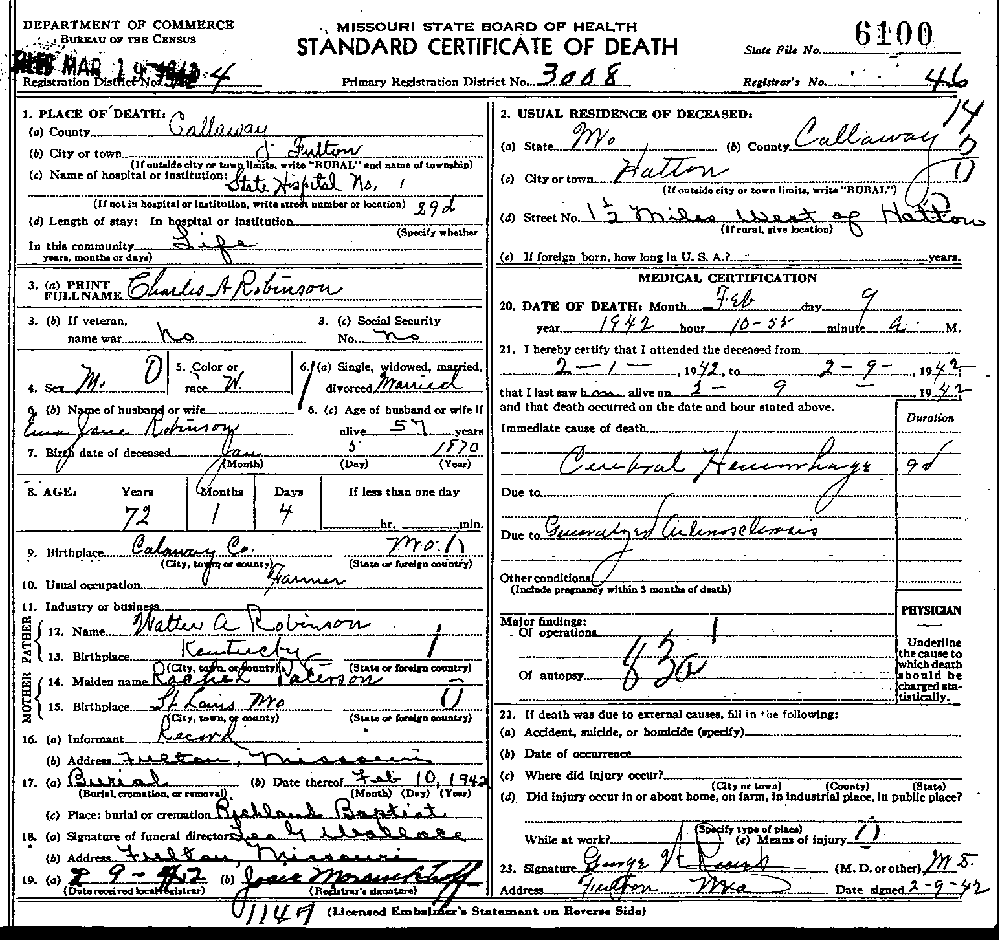 DEPARTMENT OF COMMERCE
BUREAU OF THE CENSUS
MAR 19
Registration District No. 4
MISSOURI STATE BOARD OF HEALTH
STANDARD CERTIFICATE OF DEATH
Primary Registration District No. 3008
State File No. 6100
Registrar's No. 46
1. PLACE OF DEATH:
(a) County Callaway
(b) City or town Fulton
(If outside city or town limits, write "RURAL" and name of township)
(c) Name of hospital or institution: State Hospital No. 1
(If not in hospital or institution, write street number or location)
(d) Length of stay: In hospital or institution 39d
(Specify whether
In this community Life
years, months or days)
3. (a) PRINT FULL NAME Charles A Robinson
3. (b) If veteran, name war No
3. (c) Social Security No. No
4. Sex M. 0
5. Color or race W.
6. (a) Single, widowed, married, divorced Married
6. (b) Name of husband or wife
Emma Jane Robinson
6. (c) Age of husband or wife if alive 57 years
7. Birth date of deceased Jan 5 1870
(Month) (Day) (Year)
8. AGE: Years Months Days If less than one day
72 1 4 hr. min.
9. Birthplace Calaway Co. Mo.
(City, town, or county) (State or foreign country)
10. Usual occupation Farmer
11. Industry or business
FATHER
12. Name Walter A Robinson
13. Birthplace Kentucky 1
(City, town, or county) (State or foreign country)
MOTHER
14. Maiden name Rachel Paterson
15. Birthplace St Louis Mo 0
(City, town, or county) (State or foreign country)
16. (a) Informant Record
(b) Address Fulton, Missouri
17. (a) Burial (b) Date thereof Feb 10, 1942
(Burial, cremation, or removal) (Month) (Day) (Year)
(c) Place: burial or cremation Richland Baptist
18. (a) Signature of funeral director Wallace
(b) Address Fulton, Missouri
19. (a) 2 9-42 (b) Josie
(Date received local registrar) (Registrar's signature)
1147 (Licensed Embalmer's Statement on Reverse Side)
2. USUAL RESIDENCE OF DECEASED: 14
(a) State Mo (b) County Callaway
(c) City or town Hatton 0
(If outside city or town limits, write "RURAL")
(d) Street No. 1½ Miles West of Hatton
(If rural, give location)
(e) If foreign born, how long in U. S. A.? years.
MEDICAL CERTIFICATION
20. DATE OF DEATH: Month Feb day 9
year 1942 hour 10-55 minute a. M.
21. I hereby certify that I attended the deceased from
2-1-, 1942, to 2-9-, 1942
that I last saw him alive on 2-9- 1942
and that death occurred on the date and hour stated above.
Duration
Immediate cause of death
Cerebral Hemorrhage 9d
Due to
Due to Generalized Arteriosclerosis
Other conditions
(Include pregnancy within 3 months of death)
PHYSICIAN
Underline the cause to which death should be charged statistically.
Major findings:
Of operations 1
Of autopsy 83a
22. If death was due to external causes, fill in the following:
(a) Accident, suicide, or homicide (specify)
(b) Date of occurrence
(c) Where did injury occur?
(City or town) (County) (State)
(d) Did injury occur in or about home, on farm, in industrial place, in public place?
(Specify type of place)
While at work? (e) Means of injury 0
23. Signature George (M. D. or other)
Address Fulton Mo Date signed 2-9-42